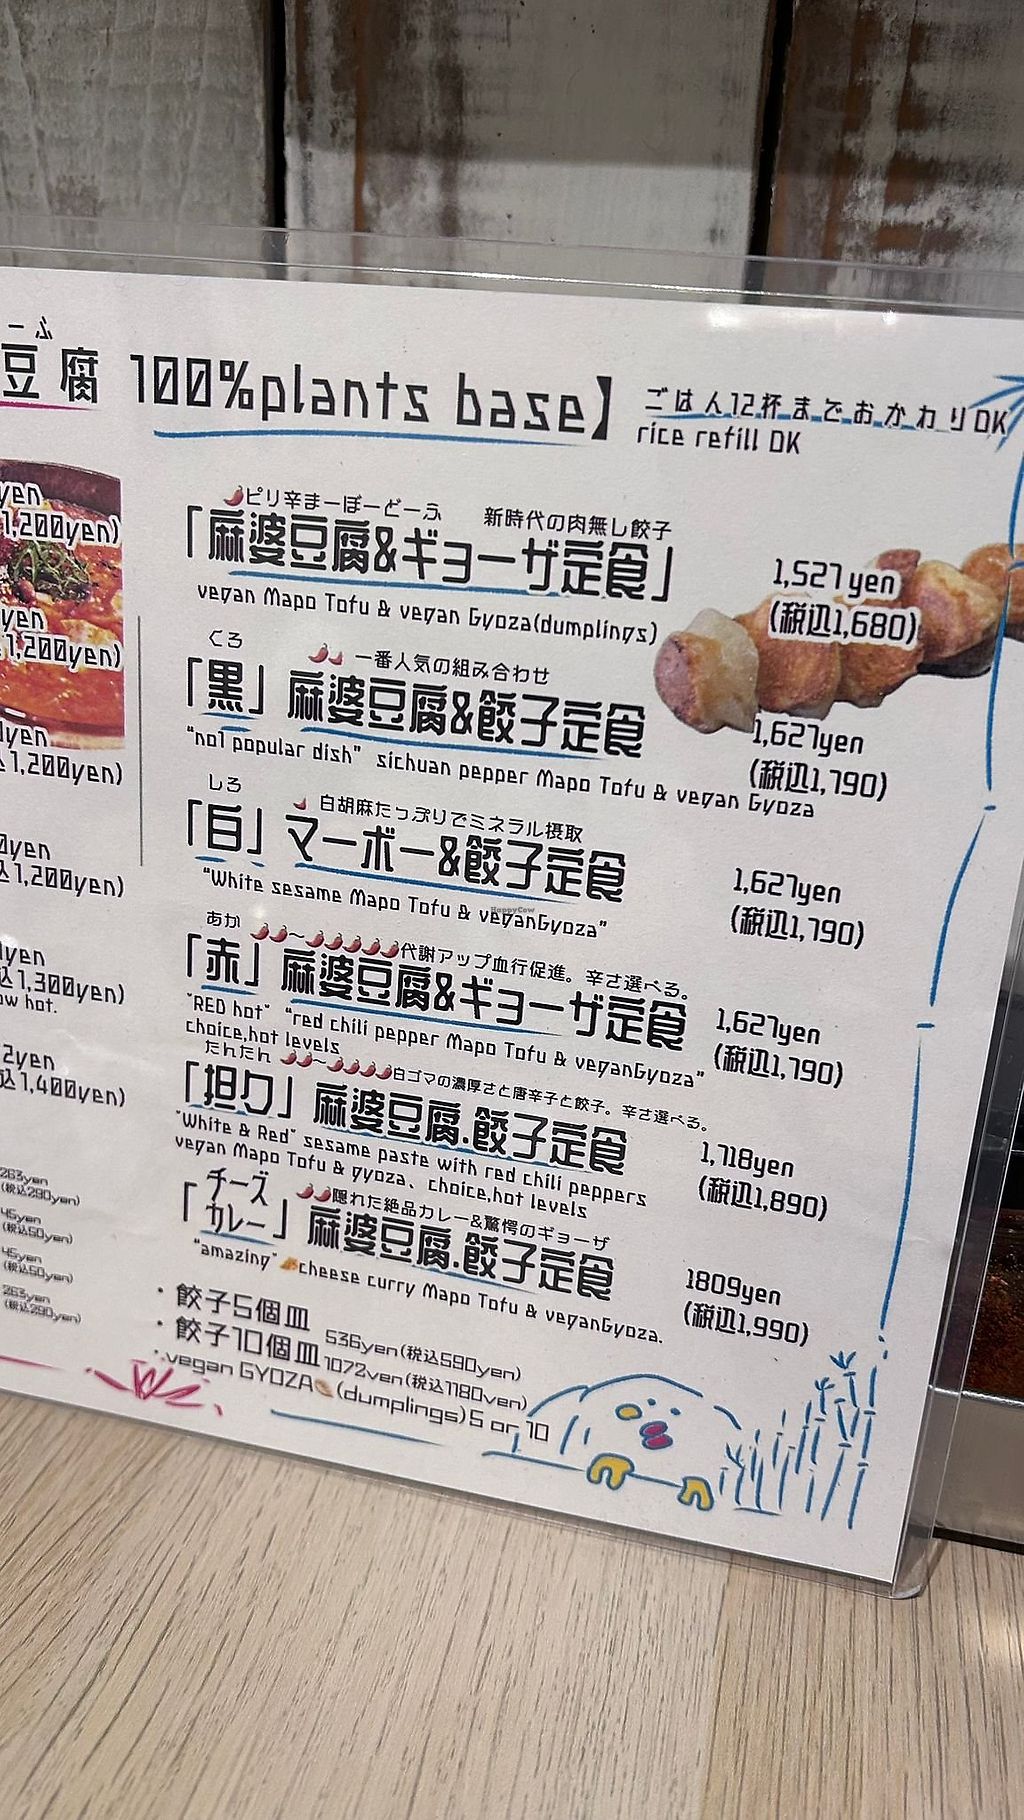 ーふ
豆腐 100%plants base】
ごはん12杯までおかわりOK
rice refill OK
yen
1,200yen)
yen
1,200yen)
yen
1,200yen)
yen
1,200yen)
yen
1,300yen)
ow hot.
2yen
1,400yen)
263yen
(税込290yen)
45yen
(税込50yen)
45yen
(税込50yen)
263yen
(税込290yen)
ピリ辛まーぼーどーふ 新時代の肉無し餃子
「麻婆豆腐&ギョーザ定食」
vegan Mapo Tofu & vegan Gyoza(dumplings)
1,527yen
(税込1,680)
くろ 一番人気の組み合わせ
「黒」麻婆豆腐&餃子定食
"no1 popular dish" sichuan pepper Mapo Tofu & vegan Gyoza
1,627yen
(税込1,790)
しろ 白胡麻たっぷりでミネラル摂取
「白」マーボー&餃子定食
"White sesame Mapo Tofu & veganGyoza"
1,627yen
(税込1,790)
HappyCow
あか ～ 代謝アップ血行促進。辛さ選べる。
「赤」麻婆豆腐&ギョーザ定食
"RED hot" "red chili pepper Mapo Tofu & veganGyoza"
choice,hot levels
1,627yen
(税込1,790)
たんたん ～ 白ゴマの濃厚さと唐辛子と餃子。辛さ選べる。
「担々」麻婆豆腐.餃子定食
"White & Red" sesame paste with red chili peppers
vegan Mapo Tofu & gyoza、choice,hot levels
1,718yen
(税込1,890)
隠れた絶品カレー&驚愕のギョーザ
「チーズカレー」麻婆豆腐.餃子定食
"amazing" cheese curry Mapo Tofu & veganGyoza.
1809yen
(税込1,990)
・餃子5個皿 536yen(税込590yen)
・餃子10個皿 1072yen(税込1180yen)
・vegan GYOZA (dumplings) 5 or 10